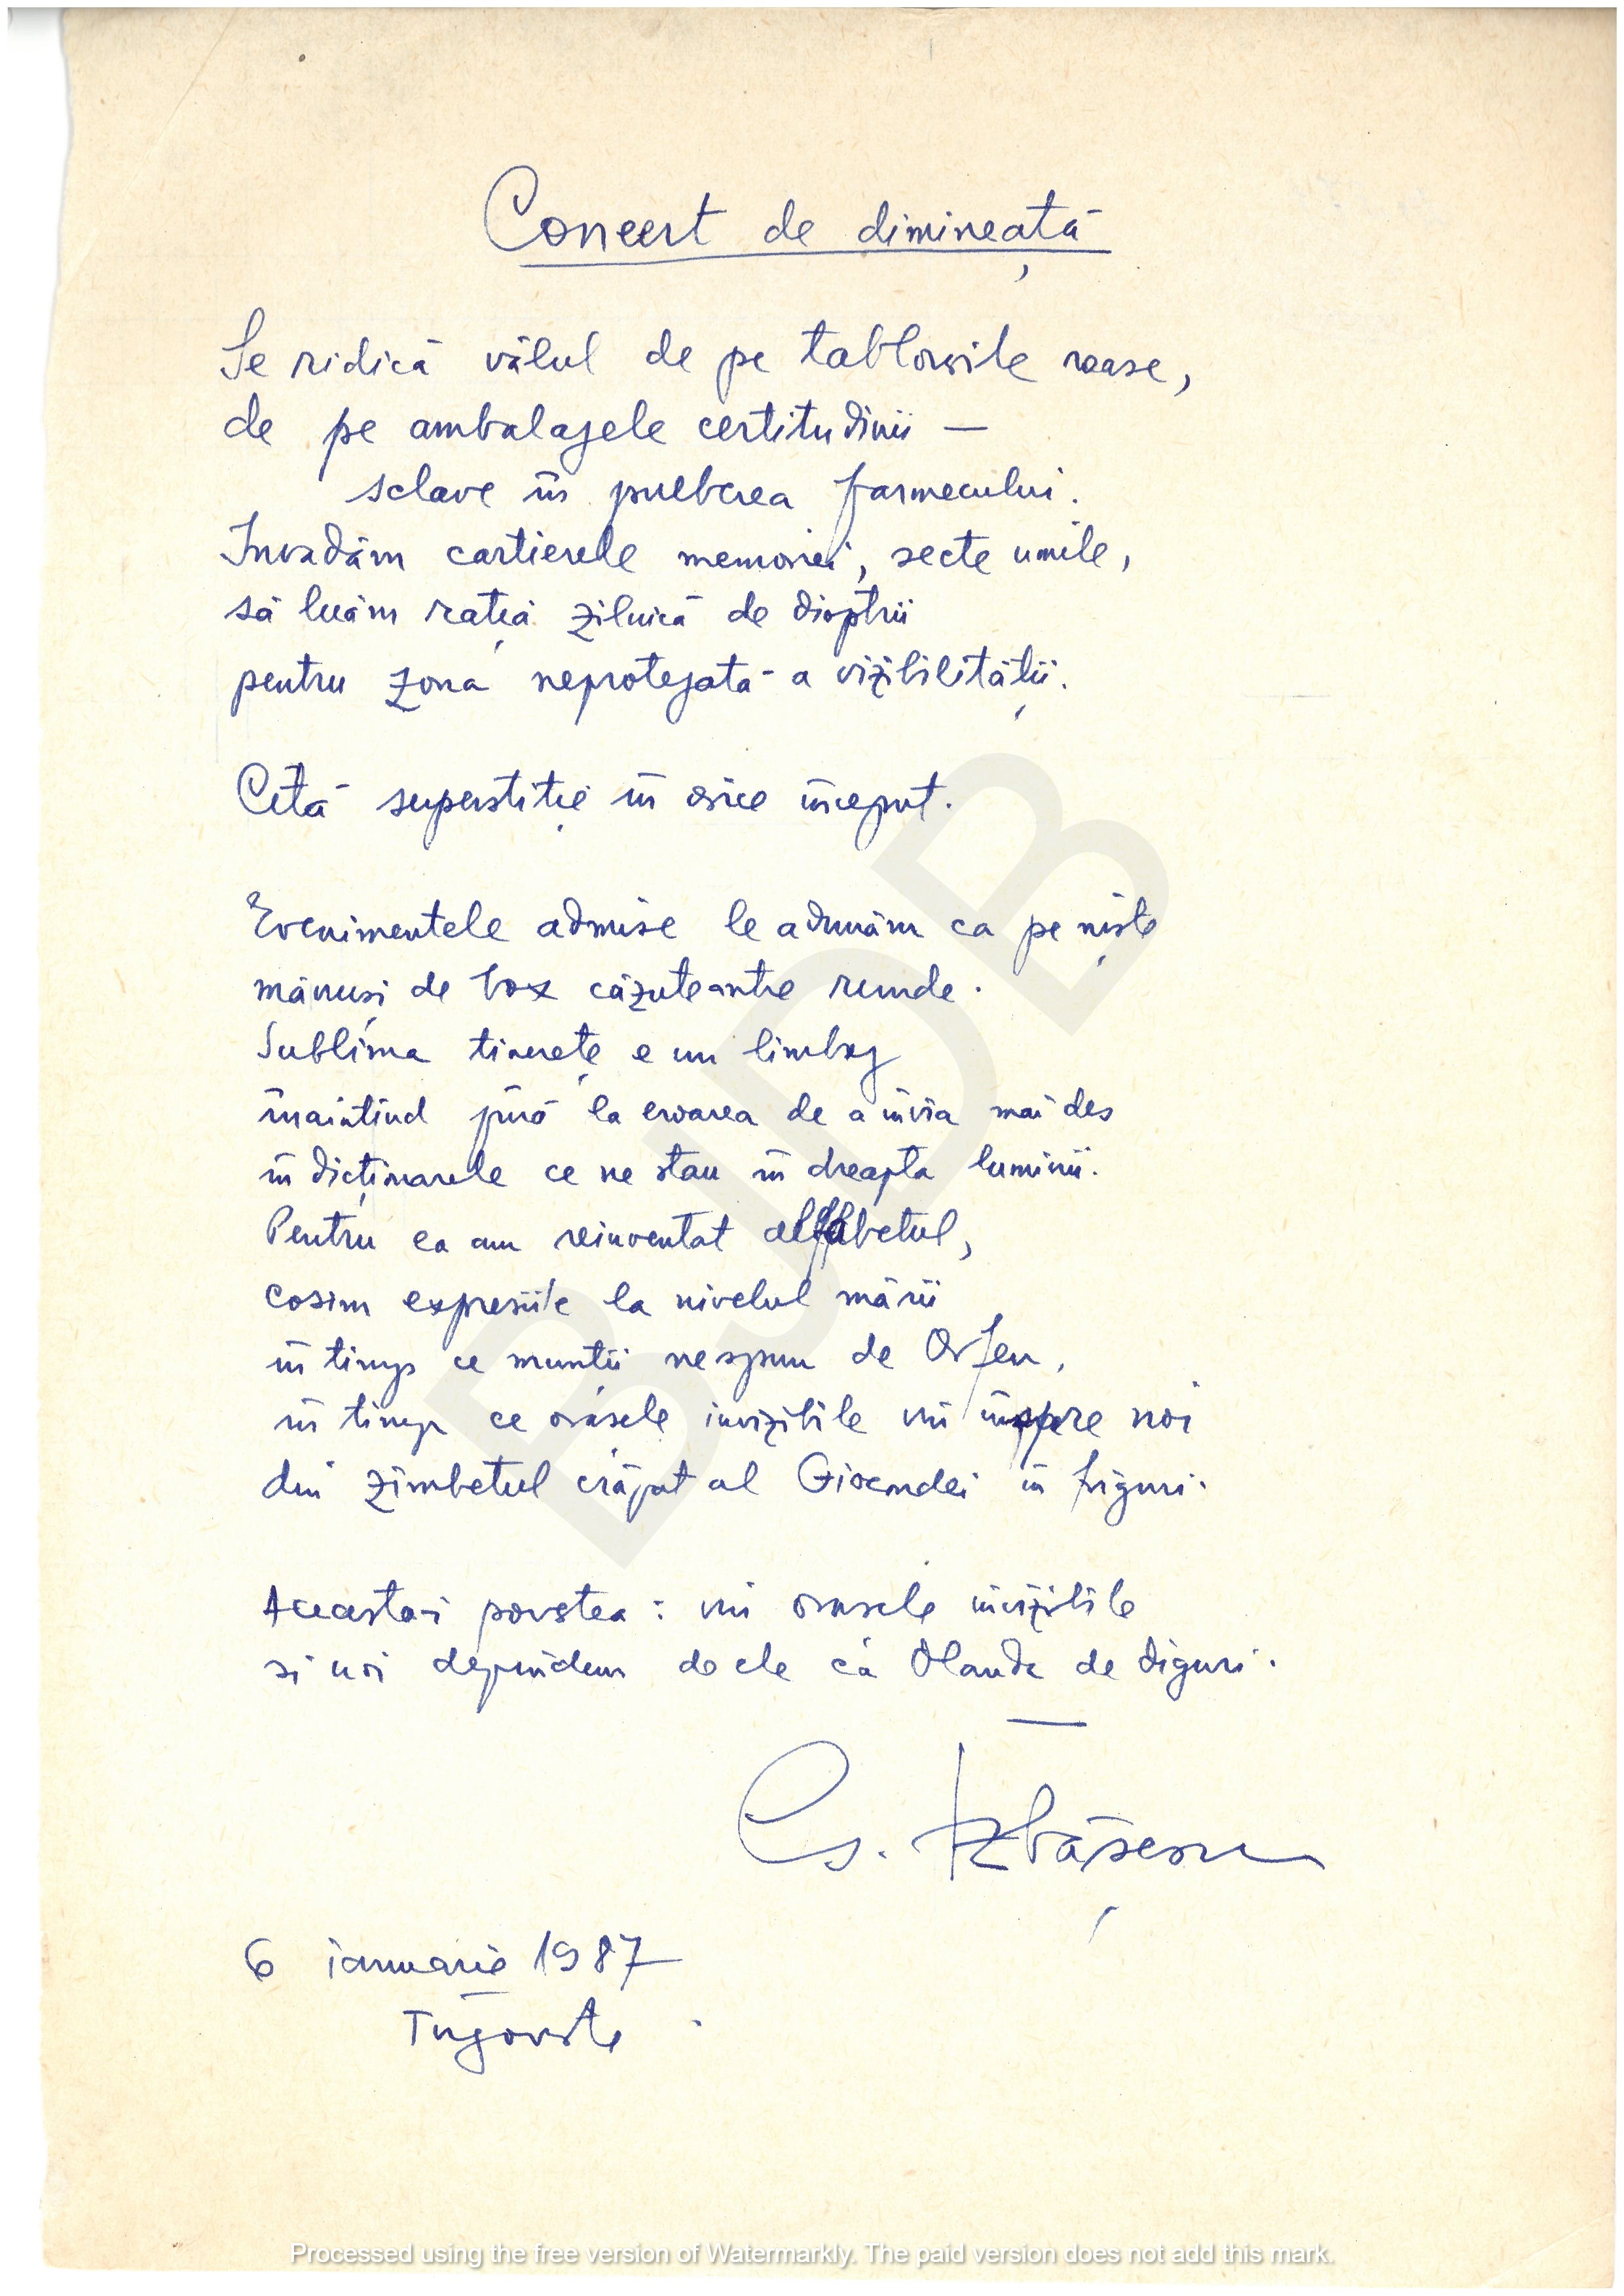 Concert de dimineață
Se ridică vălul de pe tablourile roase,
de pe ambalajele certitudinii —
sclave în pulberea farmecului.
Invadăm cartierele memoriei, secte umile,
să luăm rația zilnică de dioptrii
pentru zona neprotejată a vizibilității.
Cîtă superstiție în orice început.
Evenimentele admise le adunăm ca pe niște
mănuși de box căzute între runde.
Sublima tinerețe e un limbaj
înaintînd pînă la eroarea de a învia mai des
în dicționarele ce ne stau în dreapta luminii.
Pentru ea am reinventat alfabetul,
cosim expresiile la nivelul mării
în timp ce munții ne spun de Orfeu,
în timp ce orașele invizibile vin înspre noi
din zîmbetul crăpat al Giocondei în friguri.
Aceasta-i povestea: vin orașele invizibile
și noi depindem de ele ca Olanda de diguri.
Cs. Izbășescu
6 ianuarie 1987
Tîrgoviște
BJDB
Processed using the free version of Watermarkly. The paid version does not add this mark.